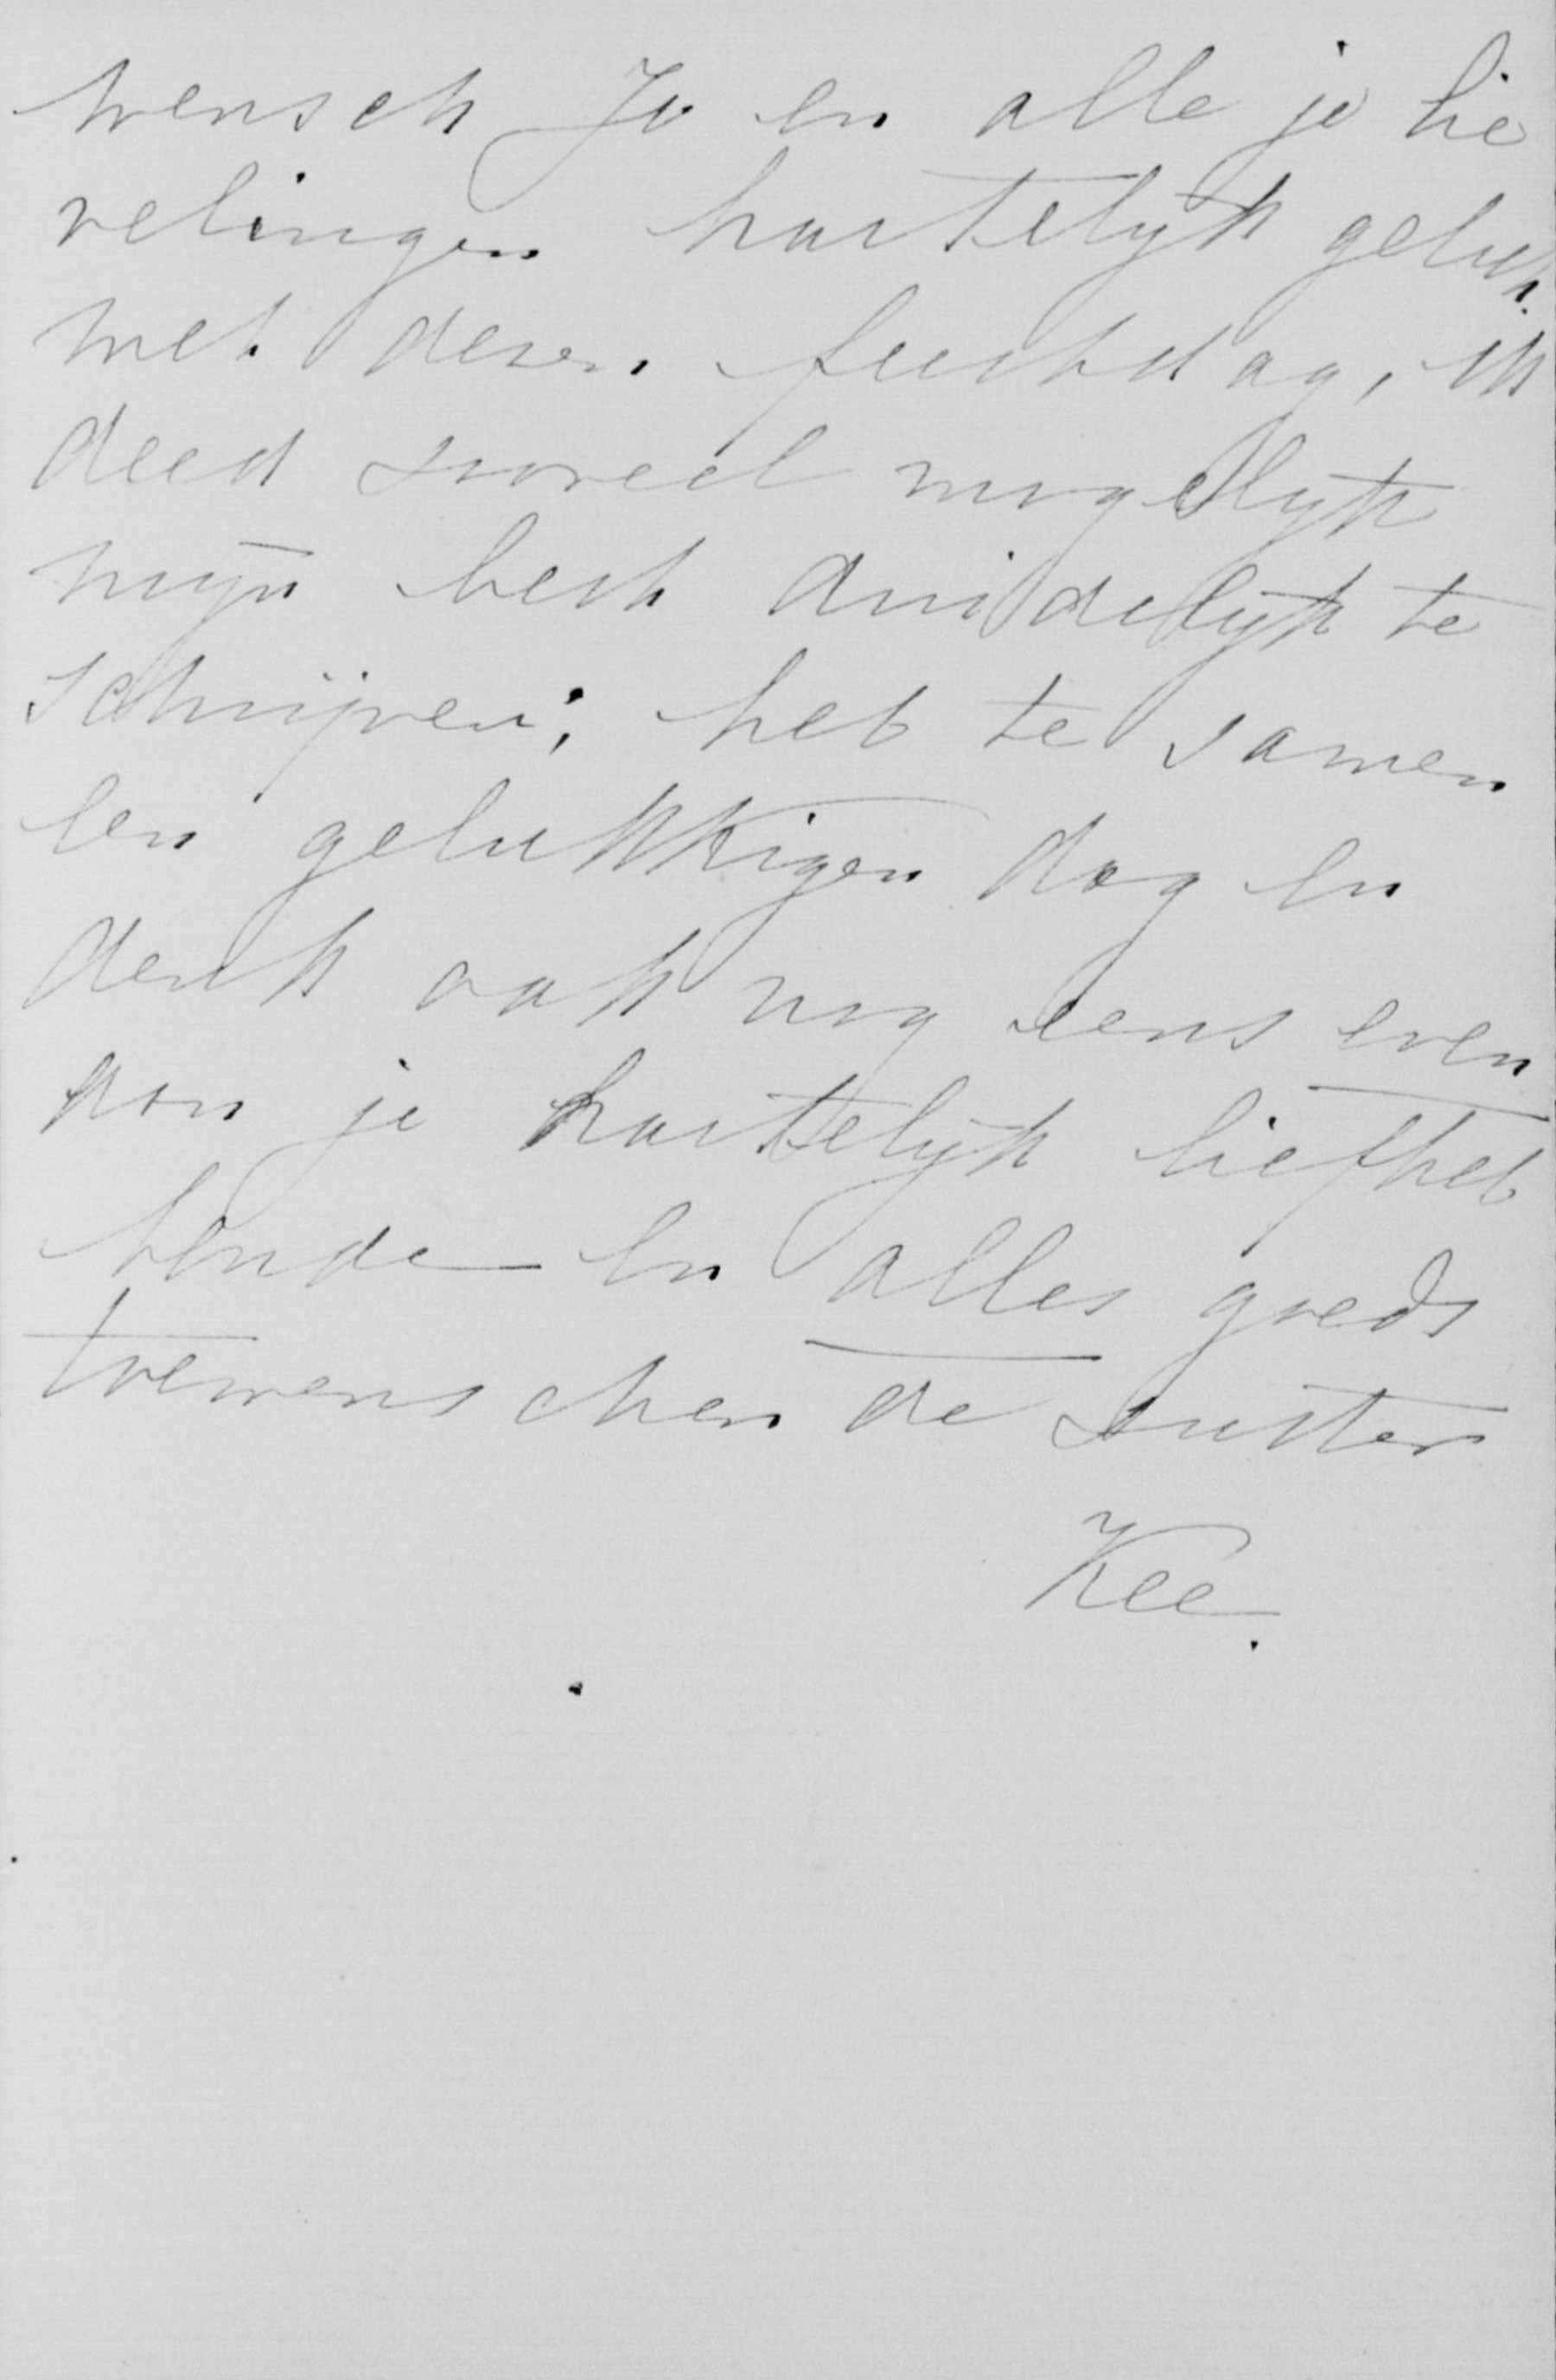 wensch Jo en alle je lie
velingen hartelyk geluk
met dezen feestdag, ik
deed zooveel mogelyk
myn best duidelyk te
schrijven; heb te samen
een gelukkigen dag en
denk ook nog eens even
aan je hartelyk liefheb
bende en alles goeds
toewenschende zuster
Kee.